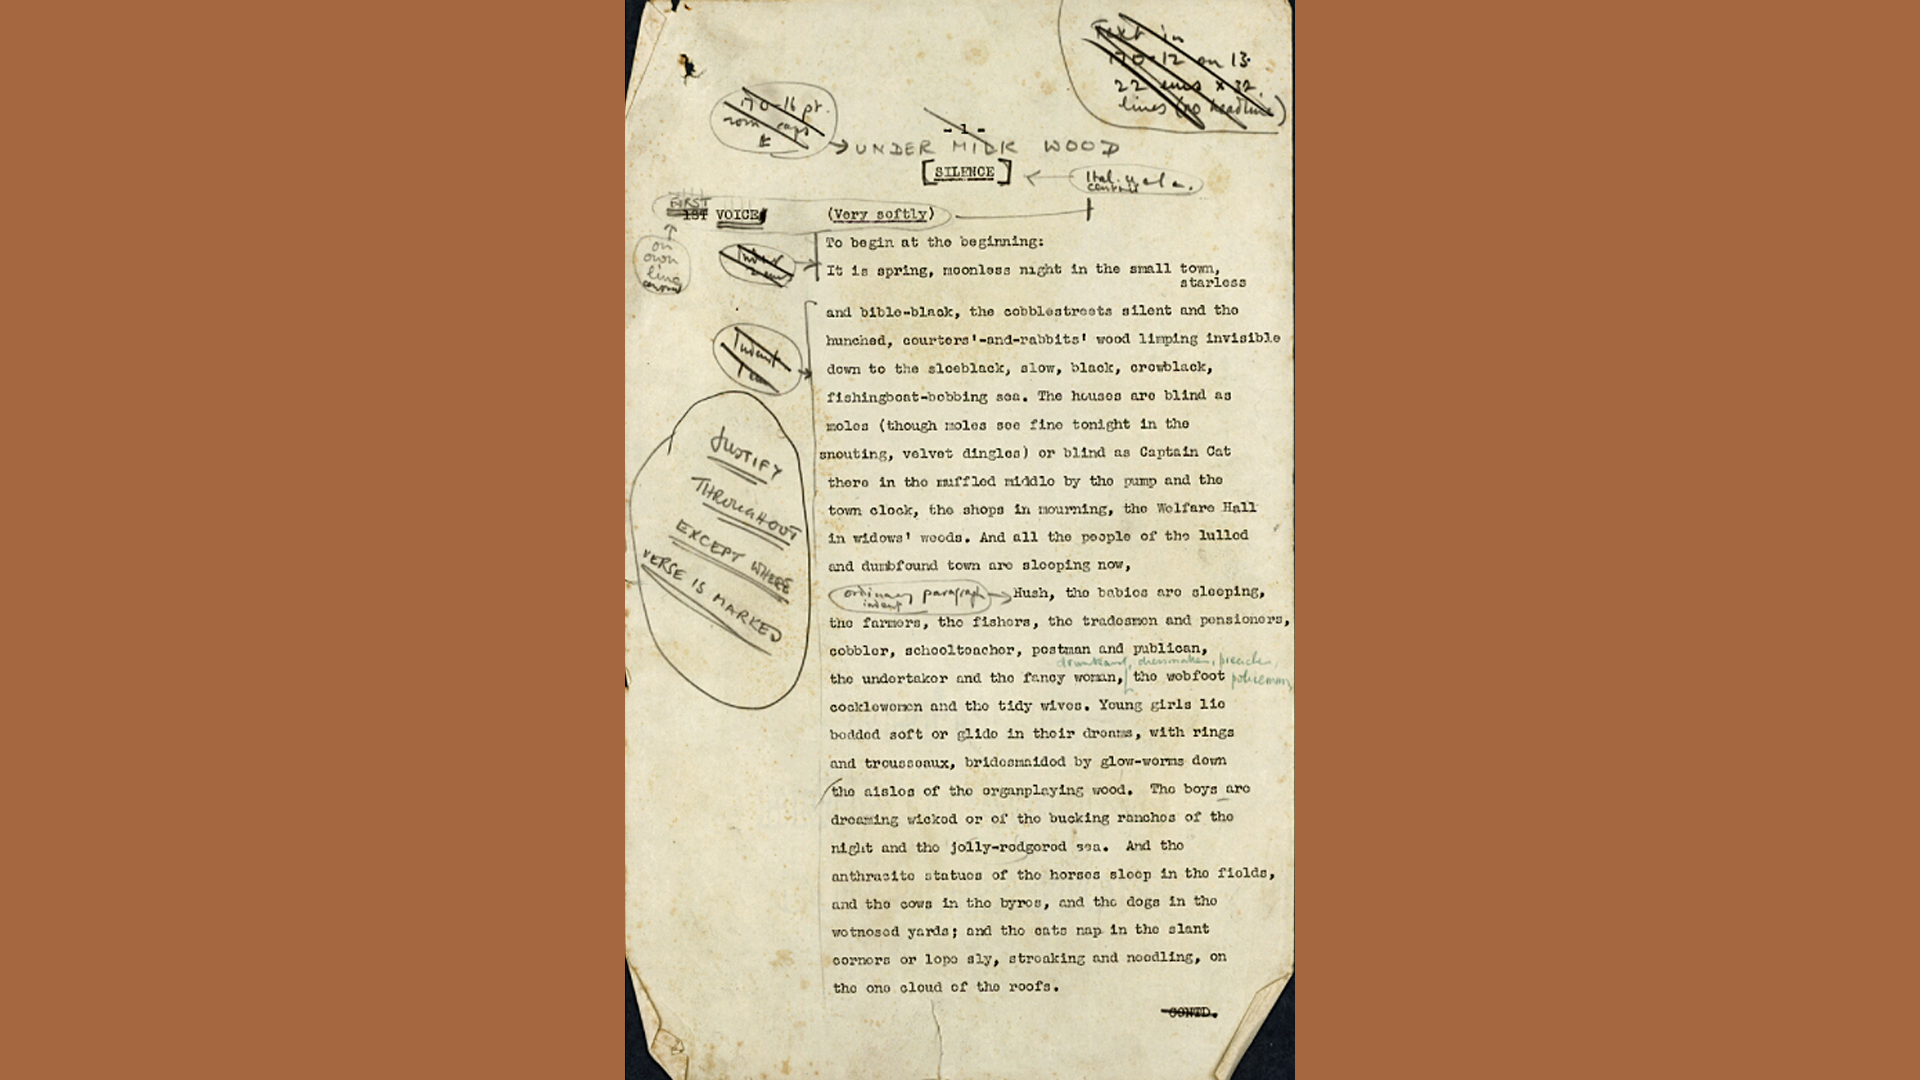 Text in
170-12 on 13
22 ems x 32
lines (no headline)
170-16 pt.
rom caps
- 1 -
UNDER MILK WOOD
[SILENCE]
Ital. u & l c.
centred
FIRST
1ST VOICE (Very softly)
on
own
line
To begin at the beginning:
Indent
It is spring, moonless night in the small town,
starless
and bible-black, the cobblestreets silent and the
hunched, courters'-and-rabbits' wood limping invisible
Indent
down to the sloeblack, slow, black, crowblack,
fishingboat-bobbing sea. The houses are blind as
moles (though moles see fine tonight in the
snouting, velvet dingles) or blind as Captain Cat
there in the muffled middle by the pump and the
town clock, the shops in mourning, the Welfare Hall
in widows' weeds. And all the people of the lulled
and dumbfound town are sleeping now,
JUSTIFY
THROUGHOUT
EXCEPT WHERE
VERSE IS MARKED
ordinary paragraph
indent
Hush, the babies are sleeping,
the farmers, the fishers, the tradesmen and pensioners,
cobbler, schoolteacher, postman and publican,
drunkard, dressmaker, preacher,
the undertaker and the fancy woman, the webfoot policeman,
cocklewomen and the tidy wives. Young girls lie
bedded soft or glide in their dreams, with rings
and trousseaux, bridesmaided by glow-worms down
the aisles of the organplaying wood. The boys are
dreaming wicked or of the bucking ranches of the
night and the jolly-rodgered sea. And the
anthracite statues of the horses sleep in the fields,
and the cows in the byres, and the dogs in the
wetnosed yards; and the cats nap in the slant
corners or lope sly, streaking and needling, on
the one cloud of the roofs.
CONTD.